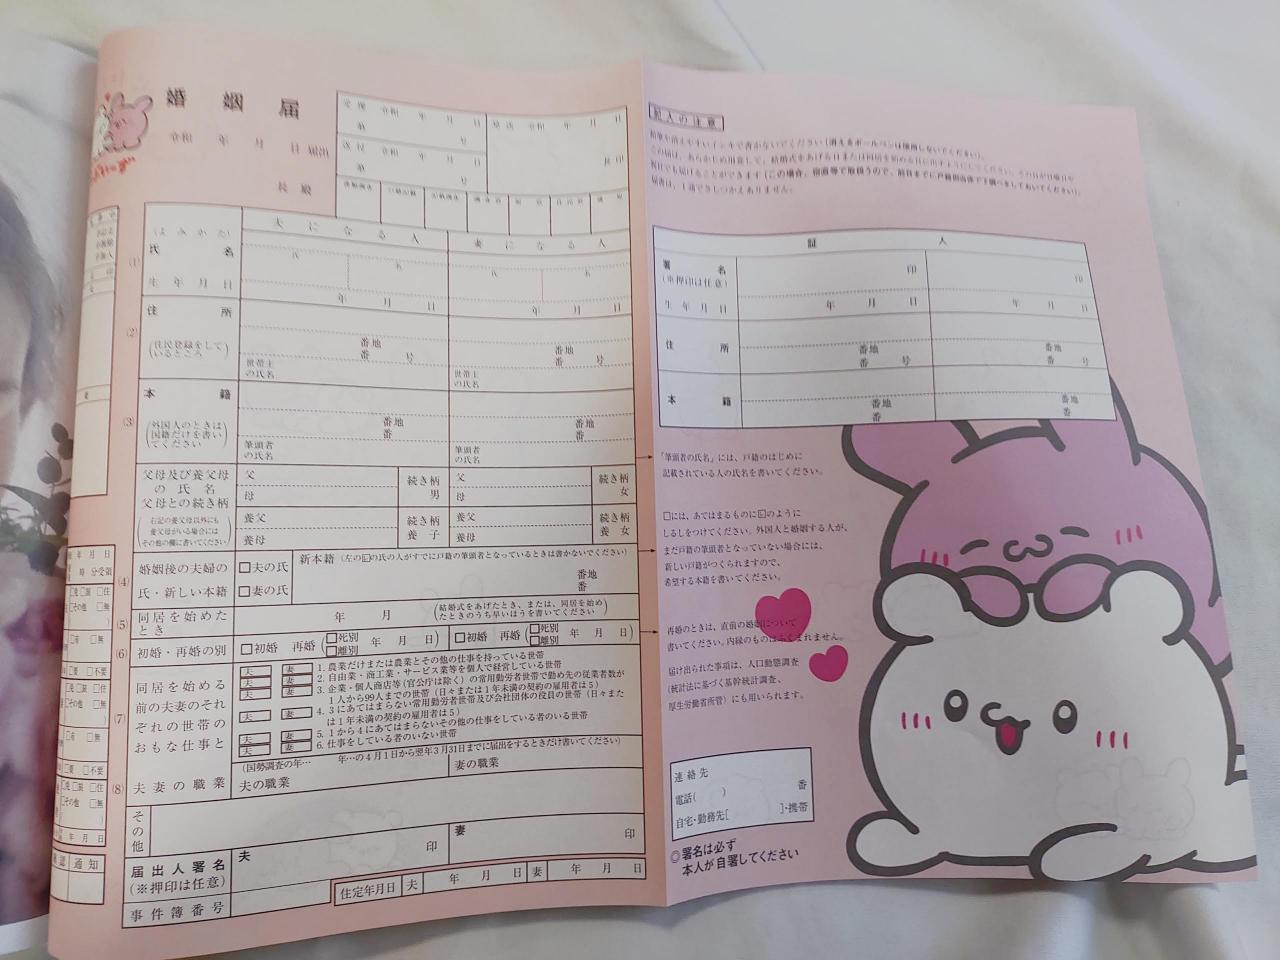 婚姻届
令和 年 月 日 届出
長 殿
受理 令和 年 月 日
第 号
発送 令和 年 月 日
送付 令和 年 月 日
第 号
長印
(よみかた)
夫になる人
妻になる人
(1)
氏名
氏 名
氏 名
生年月日
年 月 日
年 月 日
(2)
住所
(住民登録をしているところ)
番地
番 号
番地
番 号
世帯主
の氏名
世帯主
の氏名
(3)
本籍
(外国人のときは
国籍だけを書い
てください)
番地
番
番地
番
筆頭者
の氏名
筆頭者
の氏名
父母及び養父母
の氏名
父母との続き柄
父
母
続き柄
男
父
母
続き柄
女
(右記の養父母以外にも
養父母がいる場合には
その他の欄に書いてください)
養父
養母
続き柄
養 子
養父
養母
続き柄
養 女
(4)
婚姻後の夫婦の
氏・新しい本籍
□夫の氏
□妻の氏
新本籍(左の☑の氏の人がすでに戸籍の筆頭者となっているときは書かないでください)
番地
番
(5)
同居を始めた
とき
年 月
(結婚式をあげたとき、または、同居を始め
たときのうち早いほうを書いてください)
(6)
初婚・再婚の別
□初婚 再婚(□死別 □離別 年 月 日)
□初婚 再婚(□死別 □離別 年 月 日)
(7)
同居を始める
前の夫妻のそれ
ぞれの世帯の
おもな仕事と
夫 妻 1.農業だけまたは農業とその他の仕事を持っている世帯
夫 妻 2.自由業・商工業・サービス業等を個人で経営している世帯
夫 妻 3.企業・個人商店等(官公庁は除く)の常用勤労者世帯で勤め先の従業者数が
1人から99人までの世帯(日々または1年未満の契約の雇用者は5)
夫 妻 4.3にあてはまらない常用勤労者世帯及び会社団体の役員の世帯(日々また
は1年未満の契約の雇用者は5)
夫 妻 5.1から4にあてはまらないその他の仕事をしている者のいる世帯
夫 妻 6.仕事をしている者のいない世帯
(8)
夫妻の職業
(国勢調査の年… 年…の4月1日から翌年3月31日までに届出をするときだけ書いてください)
夫の職業
妻の職業
その他
届出人署名
(※押印は任意)
夫 印
妻 印
事件簿番号
住定年月日
夫 年 月 日
妻 年 月 日
記入の注意
鉛筆や消えやすいインキで書かないでください(消えるボールペンは使用しないでください)。
この届は、あらかじめ用意して、結婚式をあげる日または同居を始める日に出すようにしてください。その日が日曜日や
祝日でも届けることができます(この場合、宿直等で取扱うので、前日までに戸籍担当係で下調べをしておいてください)。
届書は、1通でさしつかえありません。
証 人
署名
(※押印は任意)
印
印
生年月日
年 月 日
年 月 日
住所
番地
番 号
番地
番 号
本籍
番地
番
番地
番
「筆頭者の氏名」には、戸籍のはじめに
記載されている人の氏名を書いてください。
□には、あてはまるものに☑のように
しるしをつけてください。外国人と婚姻する人が、
まだ戸籍の筆頭者となっていない場合には、
新しい戸籍がつくられますので、
希望する本籍を書いてください。
再婚のときは、直前の婚姻について
書いてください。内縁のものはふくまれません。
届け出られた事項は、人口動態調査
(統計法に基づく基幹統計調査、
厚生労働省所管)にも用いられます。
連絡先
電話( ) 番
自宅・勤務先[ ]・携帯
◎署名は必ず
本人が自署してください